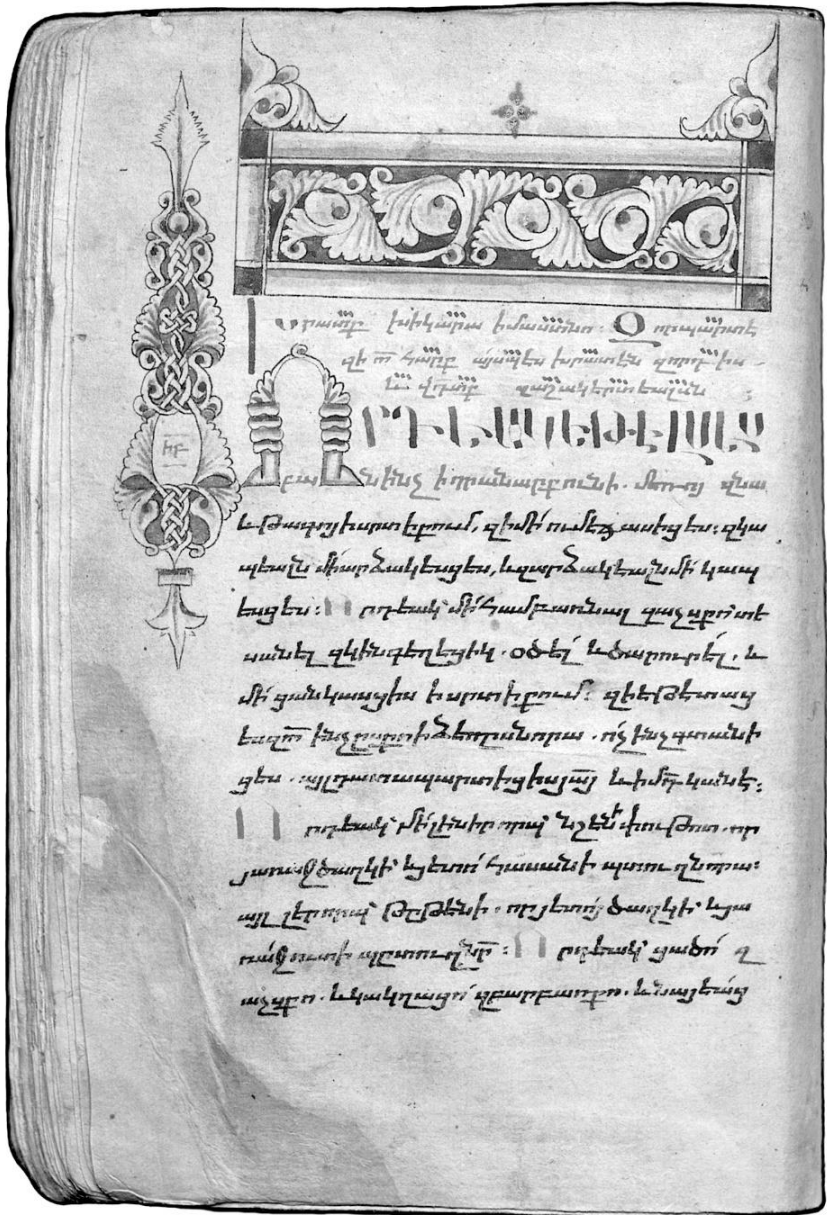 Խրատք Խիկարա իմաստնո: Զոր պարտէ
զի ամ հարք այսպէս խրատեն զորդիս
և վրդտք զաշակերտեալսն
ՈՐԴԵԱԿ ԵԹԷ ԼՍԵՍ
բան ինչ ի դրան արքունի. մեռոյ զնա
և թաղոյ ի սրտի քում, զի մի ումեք ասիցես: զկա
պեալն մի արձակեսցես, և զարձակեալն մի կապ
եսցես: Որդեակ մի համբառնալ զաչս քո տե
սանել զկին գեղեցիկ. օծեալ և ծարուրել. և
մի ցանկասցիս ի սրտի քում: զի եթէ տաց
ես զամ ինչս քո ի ձեռս նորա. ոչ ինչ գտանի
ցես. այլ դատապարտիցիս յայ և ի մարդկանէ:
Որդեակ մի լինիր որպ նշենի փութոտ. որ
յառաջ ծաղկի և յետոյ հասանի պտուղ նորա:
այլ լեր որպ թթենի. որ յետոյ ծաղկի և յա
ռաջ ուտի պըտուղ նր: Որդեակ ցածո զ
աչս քո. և կակղացո զբարբառ քո. և նայեաց